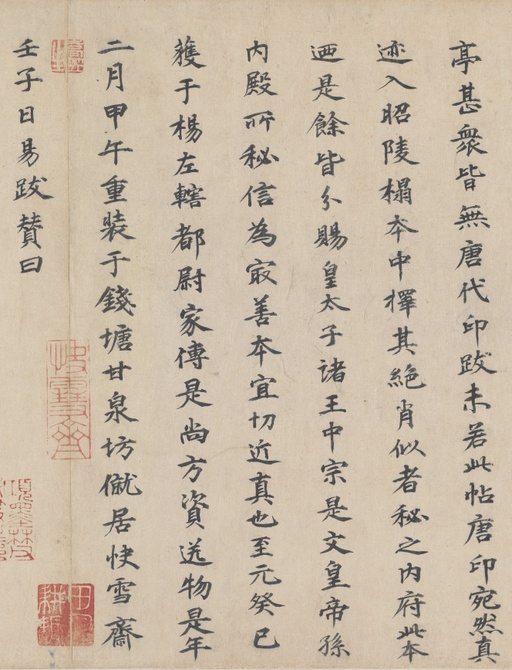 亭甚衆皆無唐代印跋未若此帖唐印宛然真
迹入昭陵榻本中擇其絶肖似者秘之内府此本
迺是餘皆分賜皇太子諸王中宗是文皇帝孫
内殿所秘信為㝡善本宜切近真也至元癸巳
獲于楊左轄都尉家傳是尚方資送物是年
二月甲午重装于錢塘甘泉坊僦居快雪齋
壬子日易跋賛曰
快雪齋